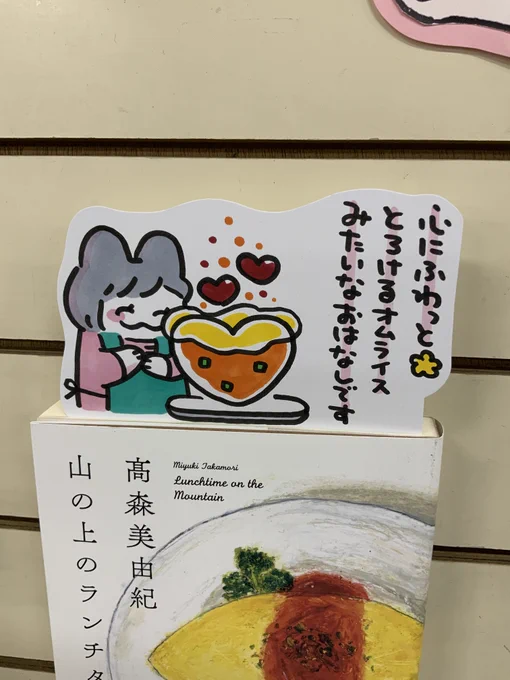 心にふわっと
とろけるオムライス
みたいなおはなしです
Miyuki Takamori
Lunchtime on the
Mountain
髙森美由紀
山の上のランチタ